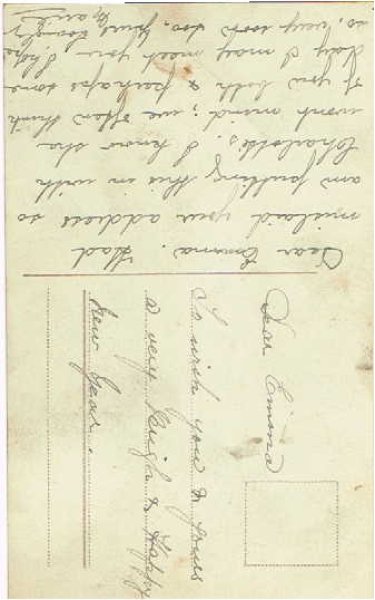 Dear Emma. Had
mislaid your address so
am putting this in with
Charlotte's, I know she
wont mind; we often think
of you both & perhaps some
day I may meet you I hope
so, very soon too, yours lovingly
Dear Emma
To wish you & yours
a very Bright & Happy
New Year.